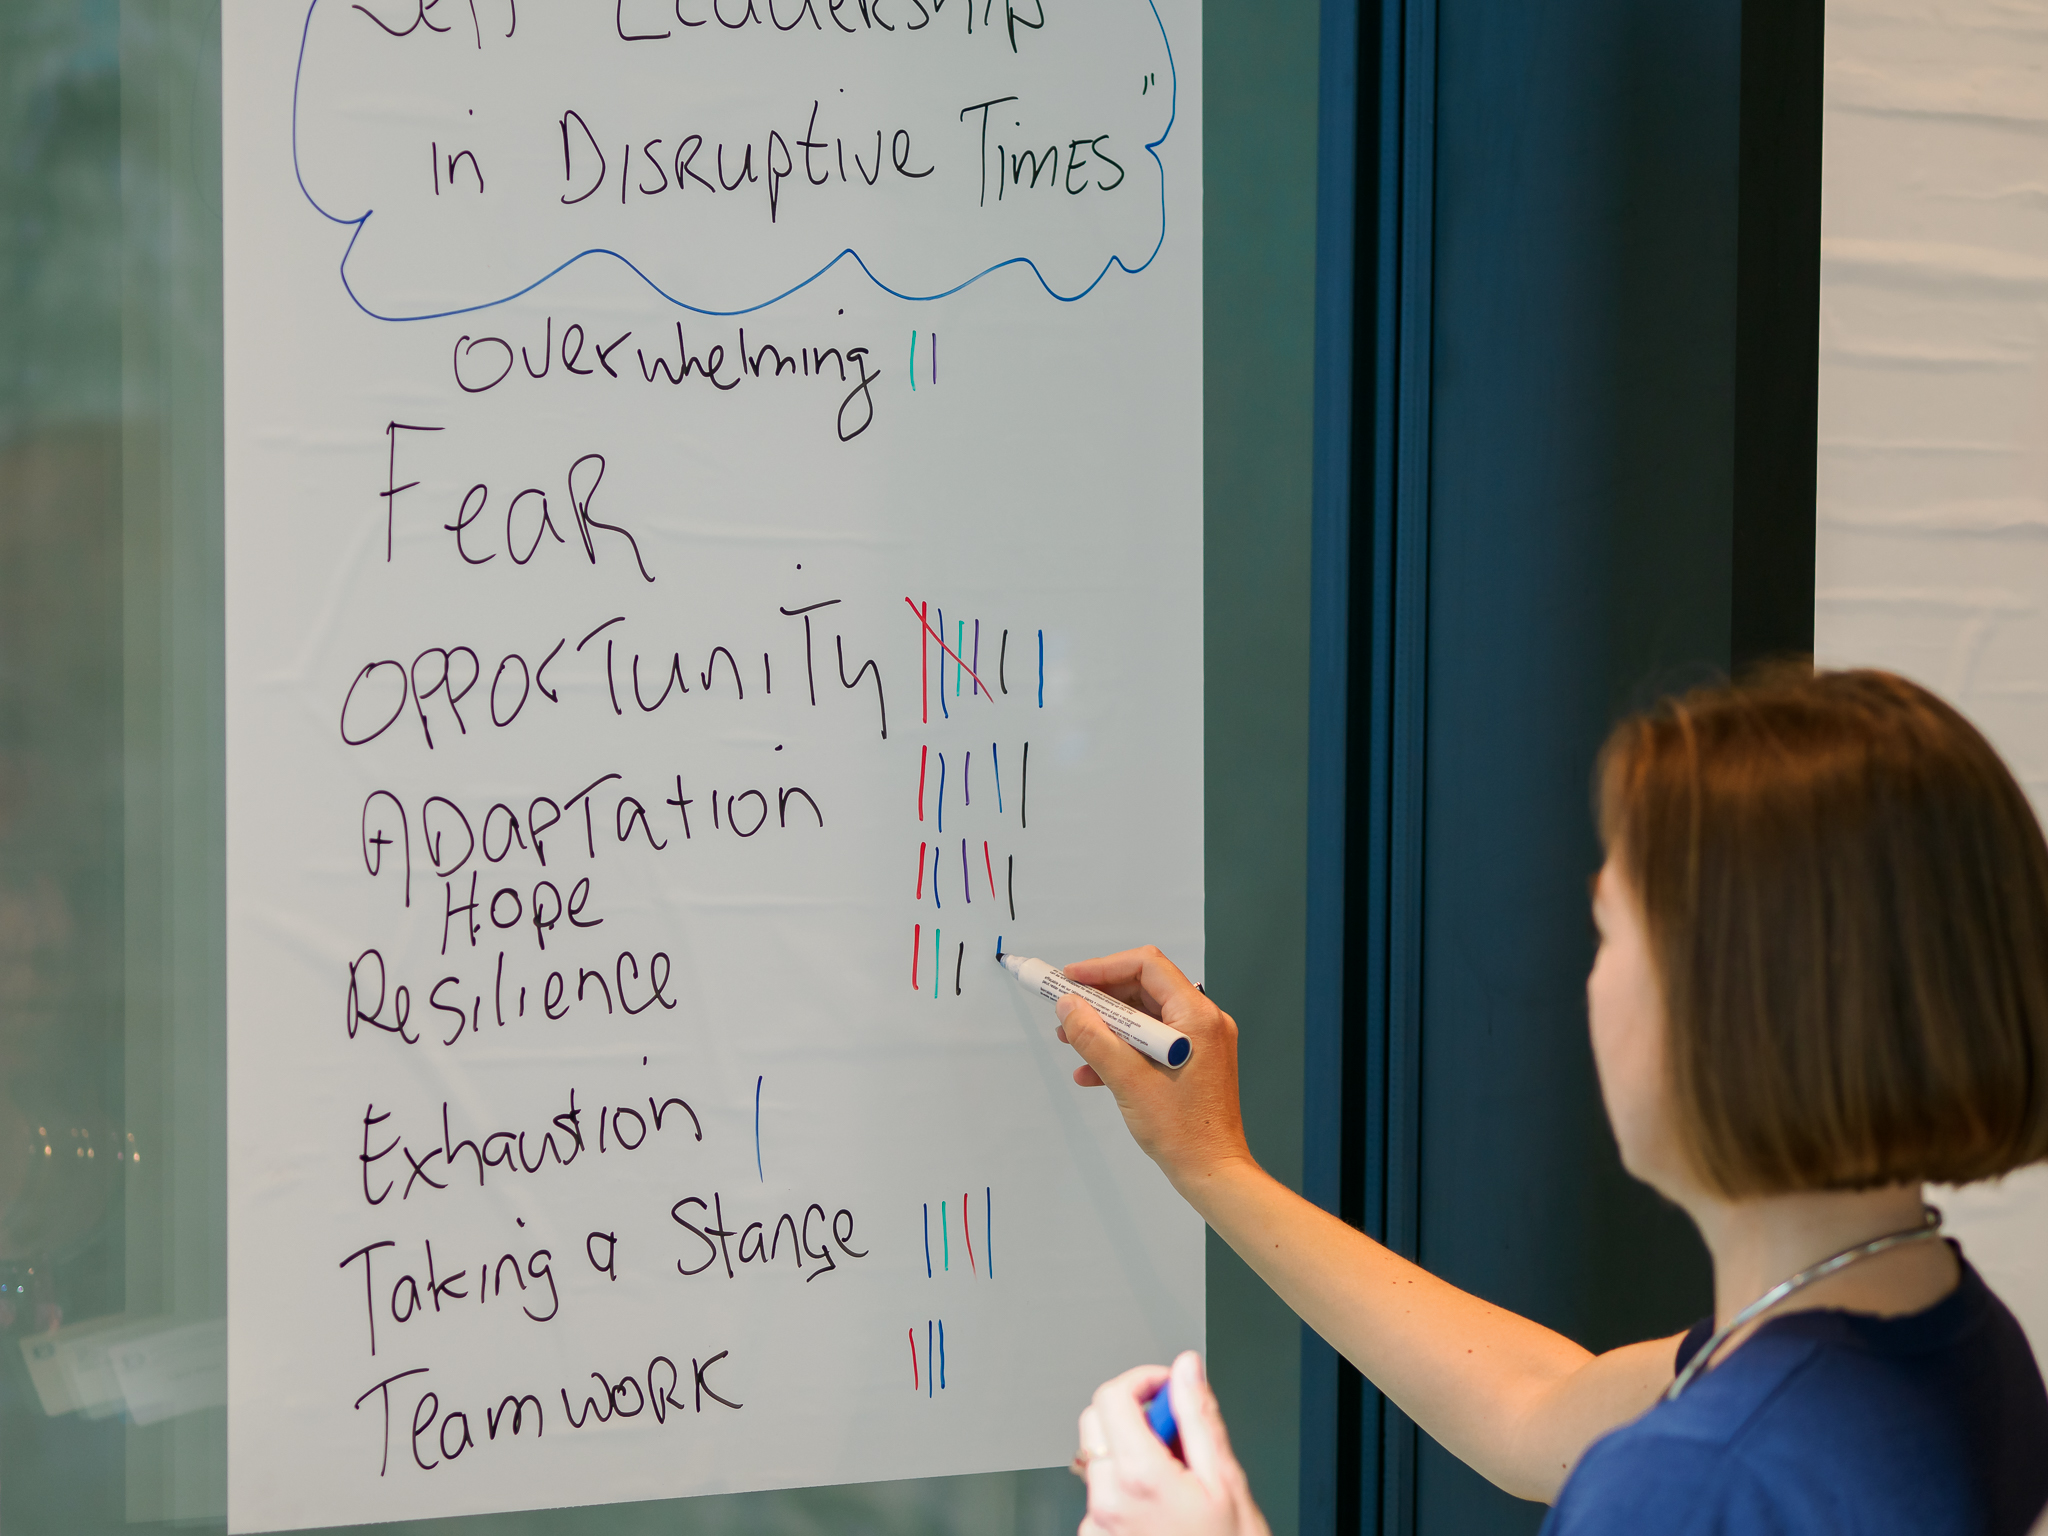 Self Leadership
in Disruptive Times"
Overwhelming
Fear
Opportunity
Adaptation
Hope
Resilience
Exhaustion
Taking a Stange
Teamwork